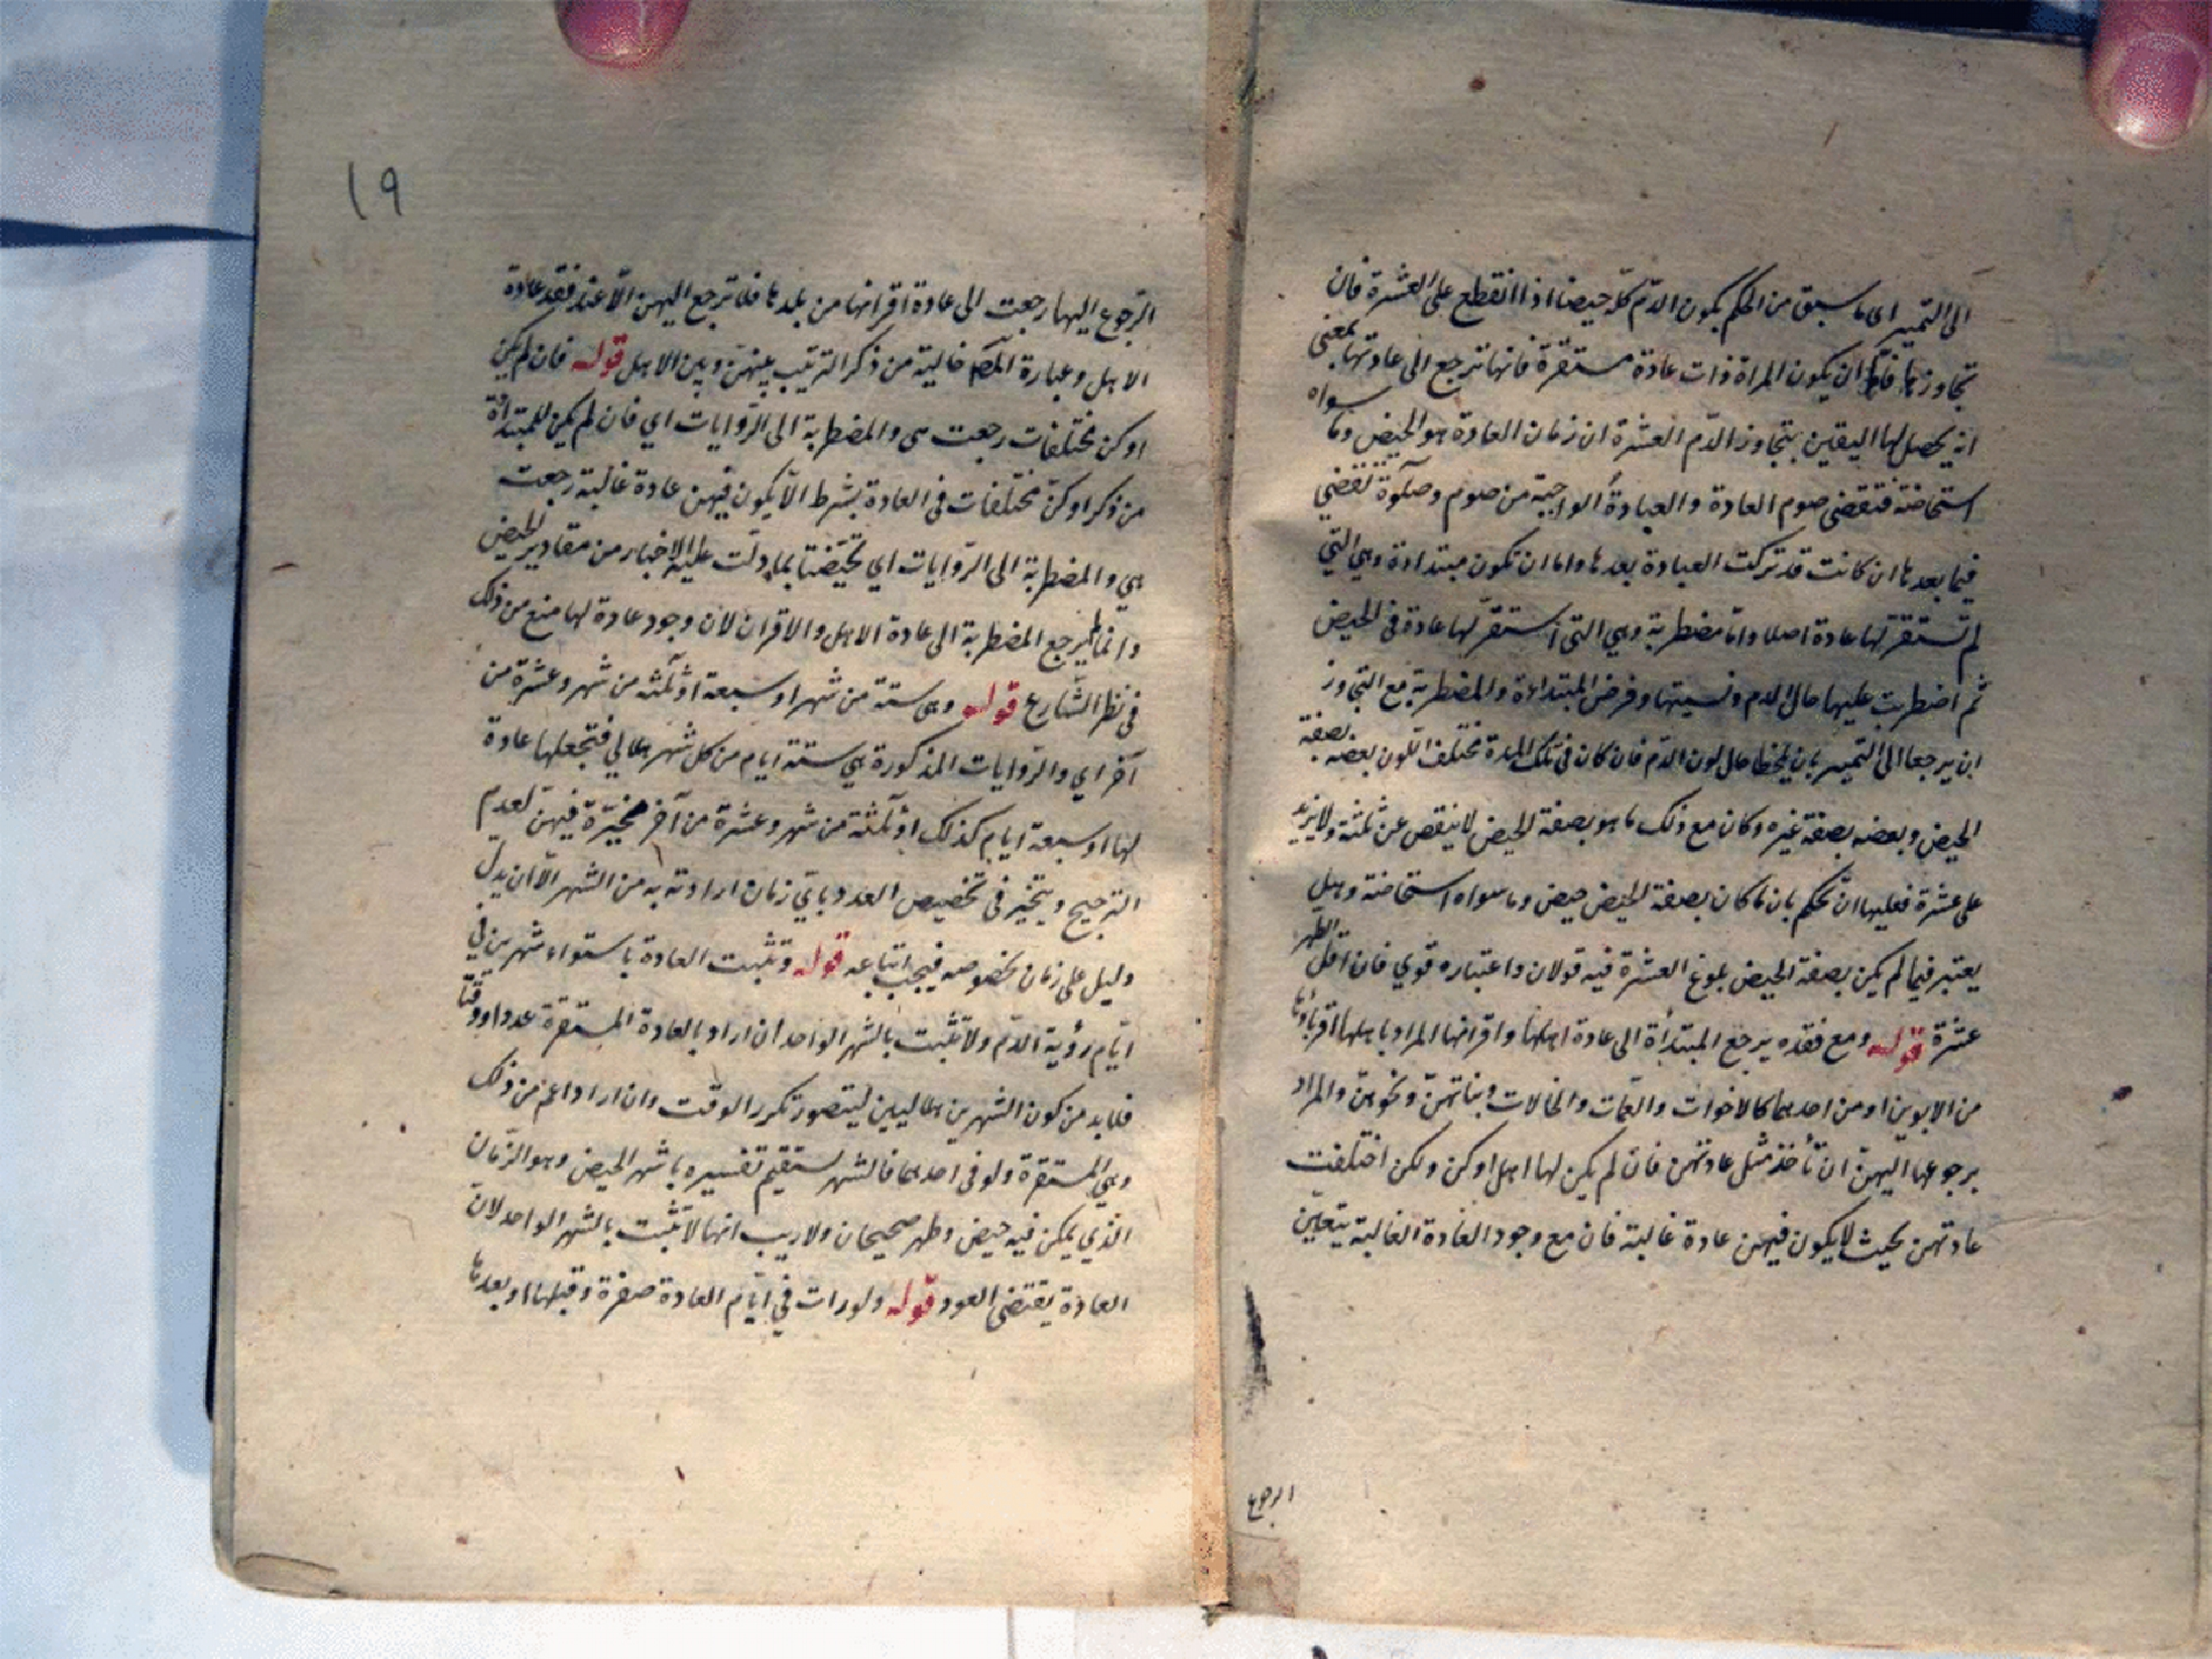 الى التمييز اى ما سبق من الحكم بكون الدّم كلّه حيضا اذا انقطع على العشرة فان
تجاوزها فامّا ان يكون المراة ذات عادة مستقرّة فانها ترجع الى عادتها بمعنى
انه يحصل لها اليقين بتجاوز الدّم العشرة ان زمان العادة هو الحيض وما سواه
استحاضة فتقضى صوم العادة والعبادة الواجبة من صوم وصلوة تقضى
فيما بعدها ان كانت قد تركت العبادة بعدها واما ان تكون مبتداءة وهي التي
لم تستقرّ لها عادة اصلا وامّا مضطربة وهي التى استقرّ لها عادة فى الحيض
ثم اضطربت عليها حال الدم ونسيتها وفرض المبتداءة والمضطربة مع التجاوز
ان يرجعا الى التمييز بان يلحظا حال لون الدّم فان كان فى تلك المدة مختلف اللّون بعضه بصفة
الحيض وبعضه بصفة غيره وكان مع ذلك ما هو بصفة الحيض لا ينقص عن ثلثة ولا يزيد
على عشرة فعليها ان تحكم بان ما كان بصفة الحيض حيض وما سواه استحاضة وهل
يعتبر فيما لم يكن بصفة الحيض بلوغ العشرة فيه قولان واعتباره قوي فان اقل الطهر
عشرة قوله ومع فقده يرجع المبتدأة الى عادة اهلها واقرانها المراد باهلها اقرباؤها
من الابوين او من احدهما كالاخوات والعمّات والخالات وبناتهنّ ونحوهنّ والمراد
برجوعها اليهنّ ان تأخذ مثل عادتهن فان لم يكن لها اهل او كن ولكن اختلفت
عادتهن بحيث لا يكون فيهن عادة غالبة فان مع وجود العادة الغالبة يتعيّن
الرجوع
١٩
الرّجوع اليها رجعت الى عادة اقرانها من بلدها فلا ترجع اليهن الّا عند فقد عادة
الاهل وعبارة المصّ خالية من ذكر الترتيب بينهنّ وبين الاهل قوله فان لم يكن
او كن مختلفات رجعت هى والمضطربة الى الرّوايات اي فان لم يكن للمبتدأة
من ذكر او كنّ مختلفات فى العادة بشرط الّا يكون فيهن عادة غالبة رجعت
هي والمضطربة الى الرّوايات اي تحيّضتا بما دلّت عليه الاخبار من مقادير الحيض
وانما لم يرجع المضطربة الى عادة الاهل والاقران لان وجود عادة لها منع من ذلك
فى نظر الشّارع قوله وهى ستة من شهر او سبعة او ثلثة من شهر وعشرة من
آخر اي والرّوايات المذكورة هي ستة ايام من كل شهر هلالي فتجعلها عادة
لها او سبعة ايام كذلك او ثلثة من شهر وعشرة من آخر مخيّرة فيهن لعدم
الترجيح ويتخيّر فى تخصيص العدد بايّ زمان ارادته به من الشهر الّا ان يدل
دليل على زمان بخصوصه فيجب اتباعه قوله وتثبت العادة باستواء شهرين في
ايّام رؤية الدّم ولا تثبت بالشهر الواحد ان اراد بالعادة المستقرة عددا ووقتا
فلا بد من كون الشهرين هلاليين ليتصور تكرر الوقت وان اراد اعم من ذلك
وهي المستقرة ولو فى احدهما فالشهر يستقيم تفسيره باشهر الحيض وهو الزّمان
الذي يمكن فيه حيض وطهر صحيحان ولا ريب انها لا تثبت بالشهر الواحد لان
العادة يقتضى العود قوله ولو رات في ايّام العادة صفرة وقبلها او بعدها